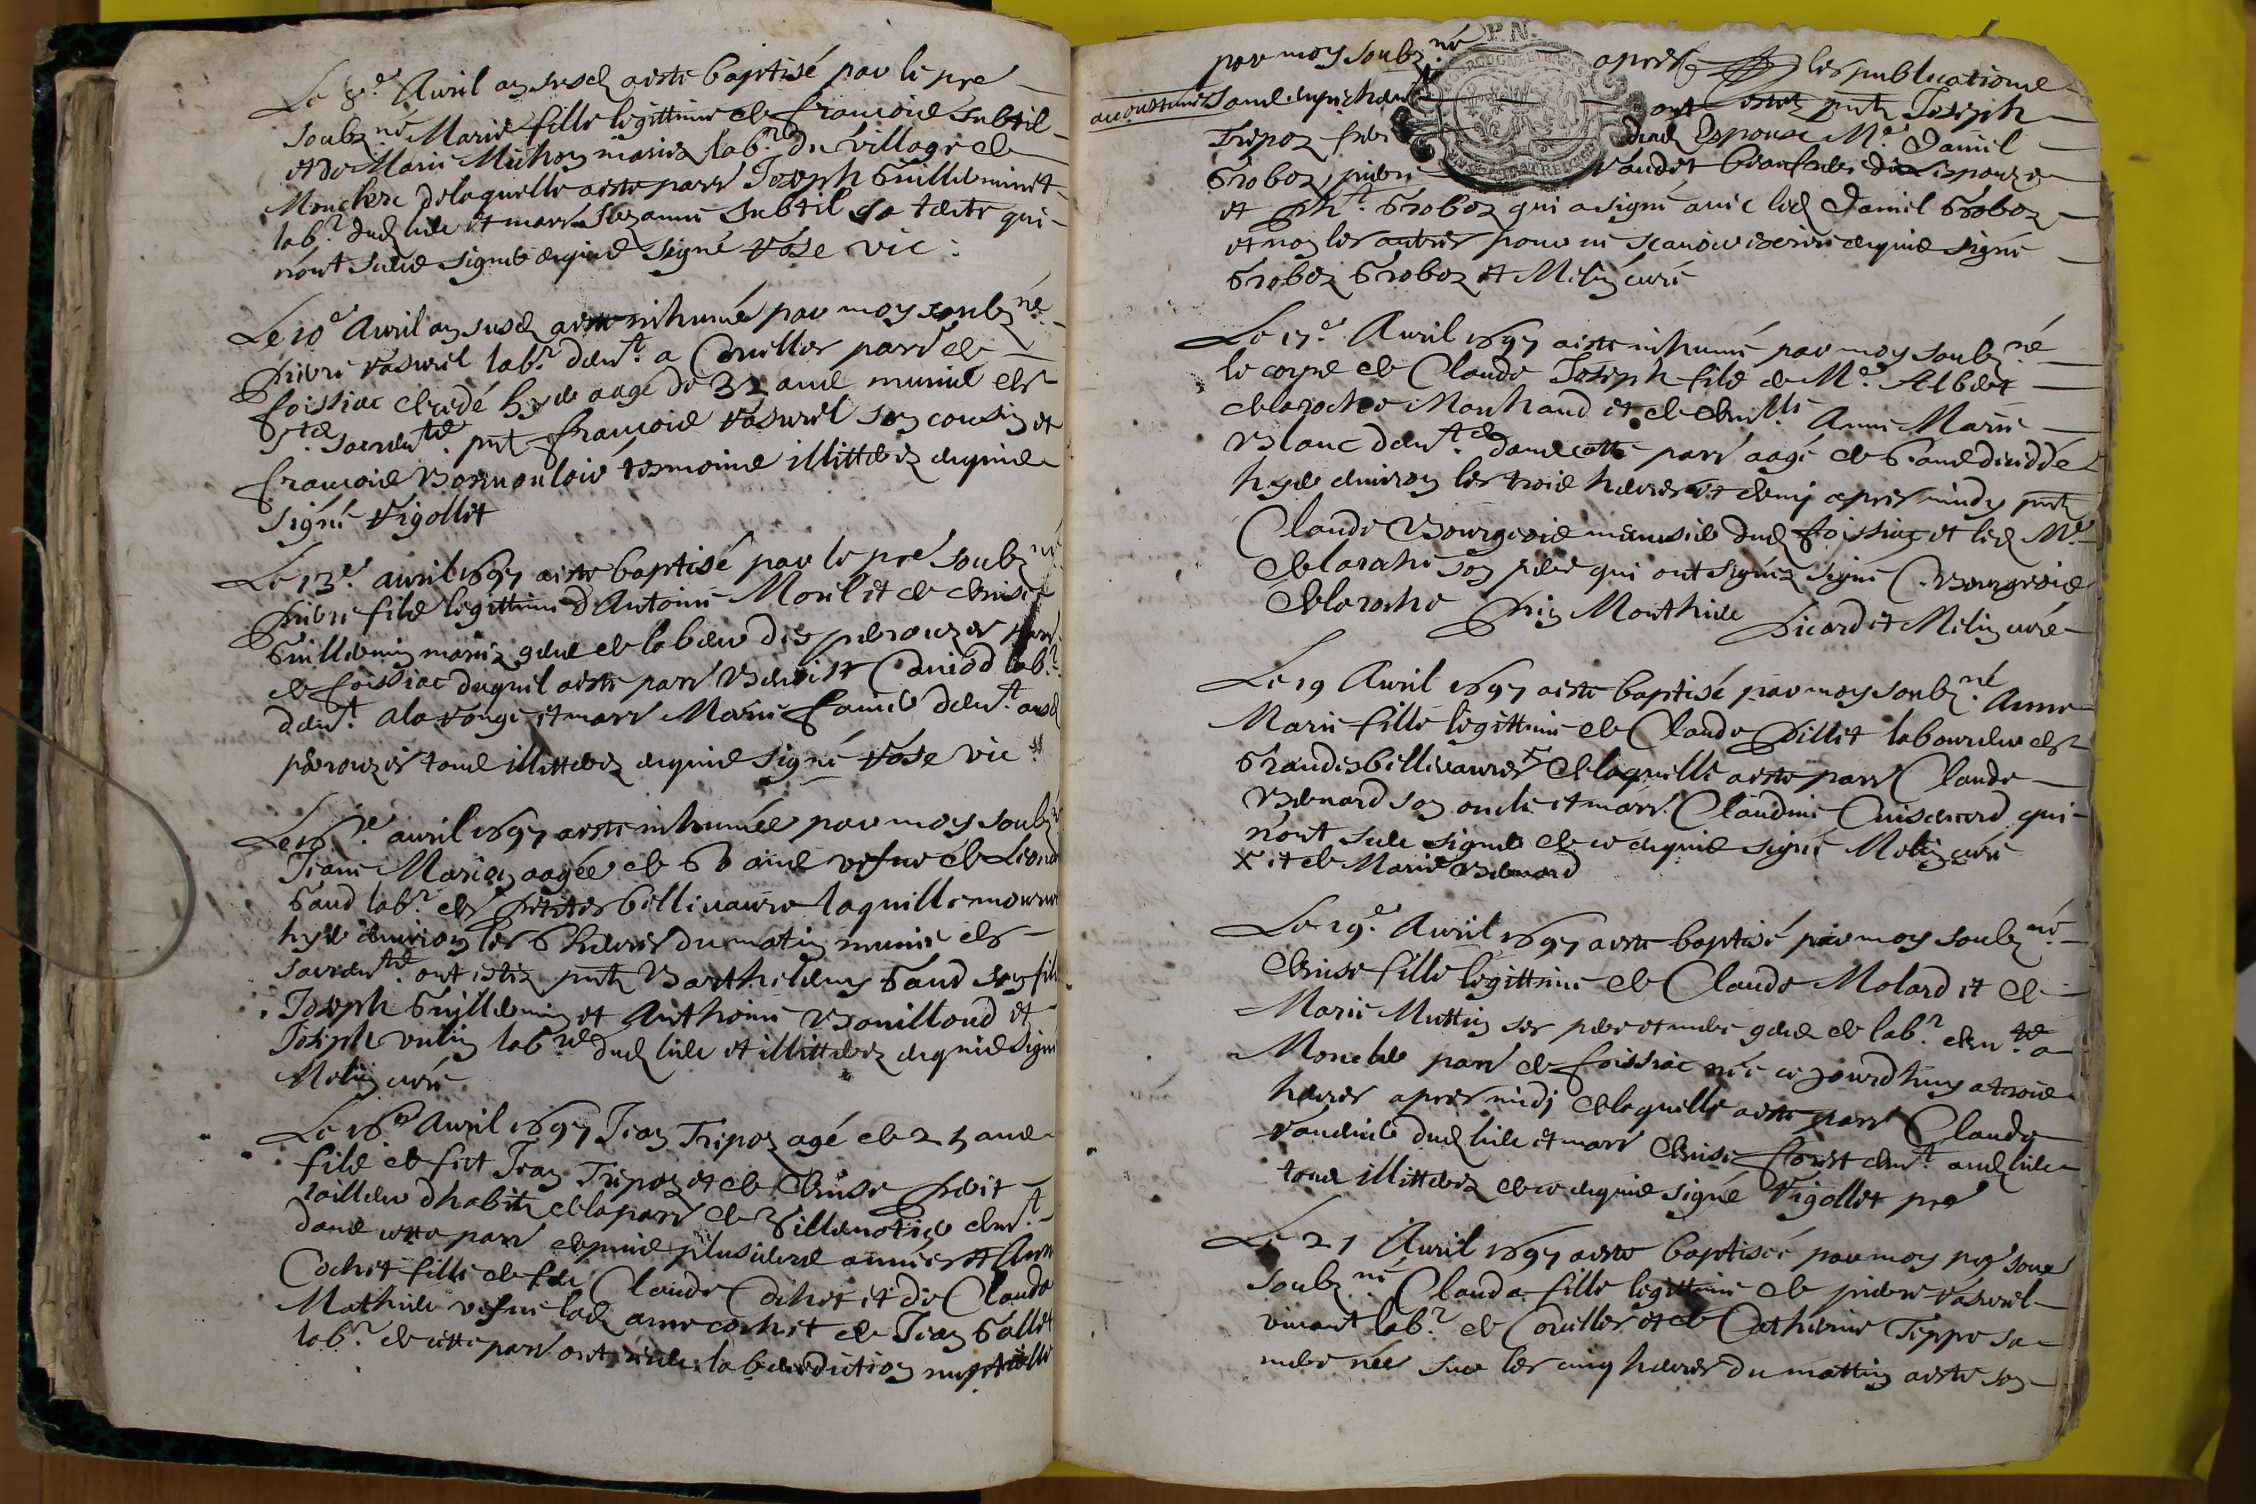 Le 8.e Avril an susd aeste baptisé par le pre
soubz.né Marie fille legittime de francois Subtil
et de Marie Michon mariez lab.r du village de
Monclere delaquelle aeste parr Joseph Guilleminet
lab.r dud lieu et marr Suzanne Subtil sa tante qui
n'ont sceu signer depuis signé Vose vic.
Le 10e Avril an susd aeste inhumé par moy soubz.né
pierre Vaswel lab.r demt. a Couilles parr de
foissiac decedé hyer aagé de 32 ans muni des
st.es sacremts. pnt francois Vaswel son cousin et
francois tesmoins illitterez depuis
signé Vigollet
Le 13.e avril 1697 aeste baptisé par le pre soubz né
pierre fils legittime d'Antoine Morlet et de denise
Guillemin mariez gens de labeur des perouzes parr
de foissiac duquel aeste parr Benoist lab.r
demt. ala et marr Marie demt. ausd
perouzes tous illitterez depuis signé Vose vic
Le 16.e avril 1697 aeste inhumée par moy soubz né
Jeanne Marion aagée de 66 ans vefue de Leonard
Gaud lab.r des petites bellivaure laquelle mourut
hyer environ les 6 heures du matin munie des
sacremts. ont estez pntz Barthelemy Gaud son fils
Joseph Guillemin et Anthoine Bouilloud et
Joseph vulin lab.rs dud lieu et illitterez depuis signé
Melin curé
Le 16e Avril 1697 Jean Tripoz agé de 25 ans
fils de fut Jean Tripoz et de denise petit
tailleur d'habitz dela parr de Villemotier demt.
dans cette parr depuis plusieurs années et Anne
Cochet fille de feu Claude Cochet et de Claude
Mathieu vefue lad anne cochet de Jean Gallet
lab.r de cette parr ont receu la benediction nuptialle
par moy soubz.né apres les publications
accoustumées sans empechemt ont estez pntz Joseph
Tripoz frere dud Espoux M.e Daniel
Groboz pierre Vaudet beaufrere dud espouze
et Groboz qui a signé avec led Daniel Groboz
et non les autres pour ne scavoir escrire depuis signé
Groboz Groboz et Melin curé
Le 17.e Avril 1697 aeste inhumé par moy soubz.né
le corps de Claude Joseph fils de M.e Albert
delaroche Marchand et de demlle. Anne Marie
Blanc demts. dans cette parr aagé de 6 ans decedé
hyer environ les trois heures et demy apres midy pntz
Claude Bourgeois menusier dud foissiac et led M.e
delaroche son pere qui ont signez signé C. Bourgeois
delaroche Monthieu picard et Melin curé
Le 19 Avril 1697 aeste baptisé par moy soubz.né Anne
Marie fille legittime de Claude pillet laboureur des
Grandes bellivaures X delaquelle aeste parr Claude
Benard son oncle et marr. Claudine Cuisenard qui
n'ont sceu signer de ce depuis signé Melin curé
X et de Marie Benard
Le 19.e Avril 1697 aeste baptisé par moy soubz.né
denise fille legittime de Claude Molard et de
Marie Muttin ses pere et mere gens de lab.r demts. a
Moncler parr de foissiac née ce jourdhuy a trois
heures apres midj delaquelle aeste parr Claude
Vaudier dud lieu et marr denise forest demt. aud lieu
tous illitterez de ce depuis signé Vigollet pre
Le 21 Avril 1697 aeste baptisée par moy pre sous
soubz.né Clauda fille legittime de pierre Vaswel
vivant lab.r de Couilles et de Catherine Teppe sa
mere née sur les cinq heures du mattin aeste son